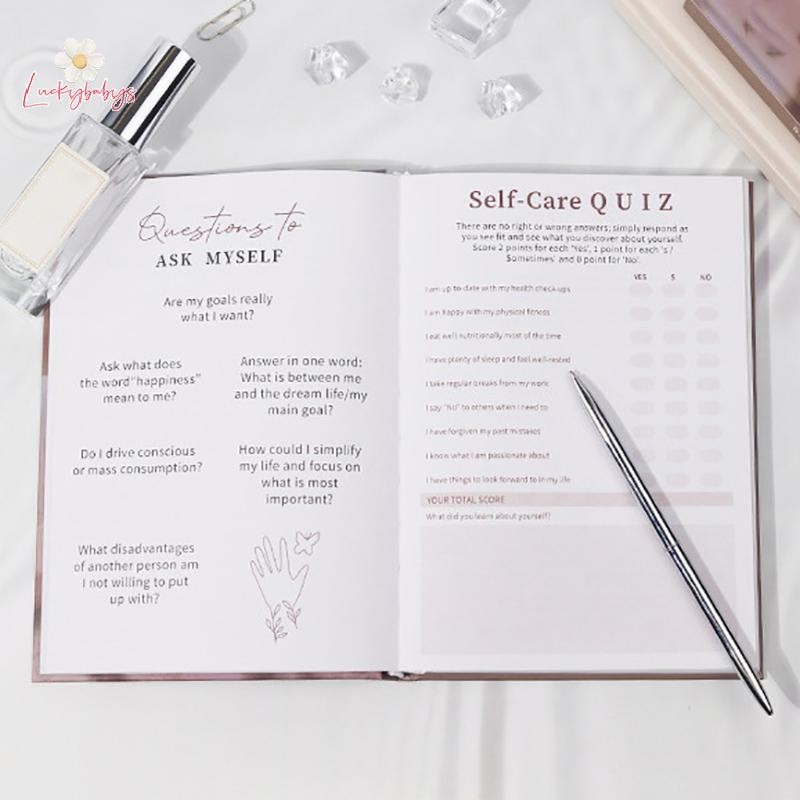 Luckybabys
Questions to
ASK MYSELF
Are my goals really
what I want?
Ask what does
the word"happiness"
mean to me?
Answer in one word:
What is between me
and the dream life/my
main goal?
Do I drive conscious
or mass consumption?
How could I simplify
my life and focus on
what is most
important?
What disadvantages
of another person am
I not willing to put
up with?
Self-Care QUIZ
There are no right or wrong answers; simply respond as
you see fit and see what you discover about yourself.
Score 2 points for each 'Yes', 1 point for each 's /
Sometimes' and 0 point for 'No'.
YES S NO
I am up-to-date with my health check-ups
I am happy with my physical fitness
I eat well nutritionally most of the time
I have plenty of sleep and feel well-rested
I take regular breaks from my work
I say "No" to others when I need to
I have forgiven my past mistakes
I know what I am passionate about
I have things to look forward to in my life
YOUR TOTAL SCORE
What did you learn about yourself?